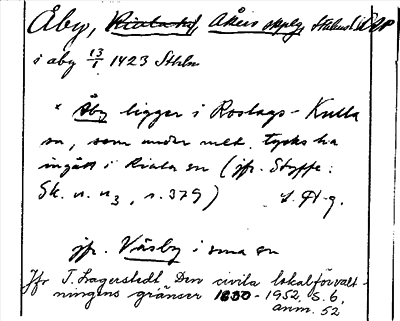 Åby, Riala sn, Åkers skplg, Sthlms l. Upl
i aby 13/1 1423 Sthlm
* Åby ligger i Roslags-Kulla
sn, som under med. tycks ha
ingått i Riala sn (jfr. Styffe:
Sk. u. u3, s. 379) S. H-g.
jfr. Väsby i sma sn
Jfr T. Lagerstedt, Den civila lokalförvalt-
ningens gränser 1630-1952, s. 6,
anm. 52